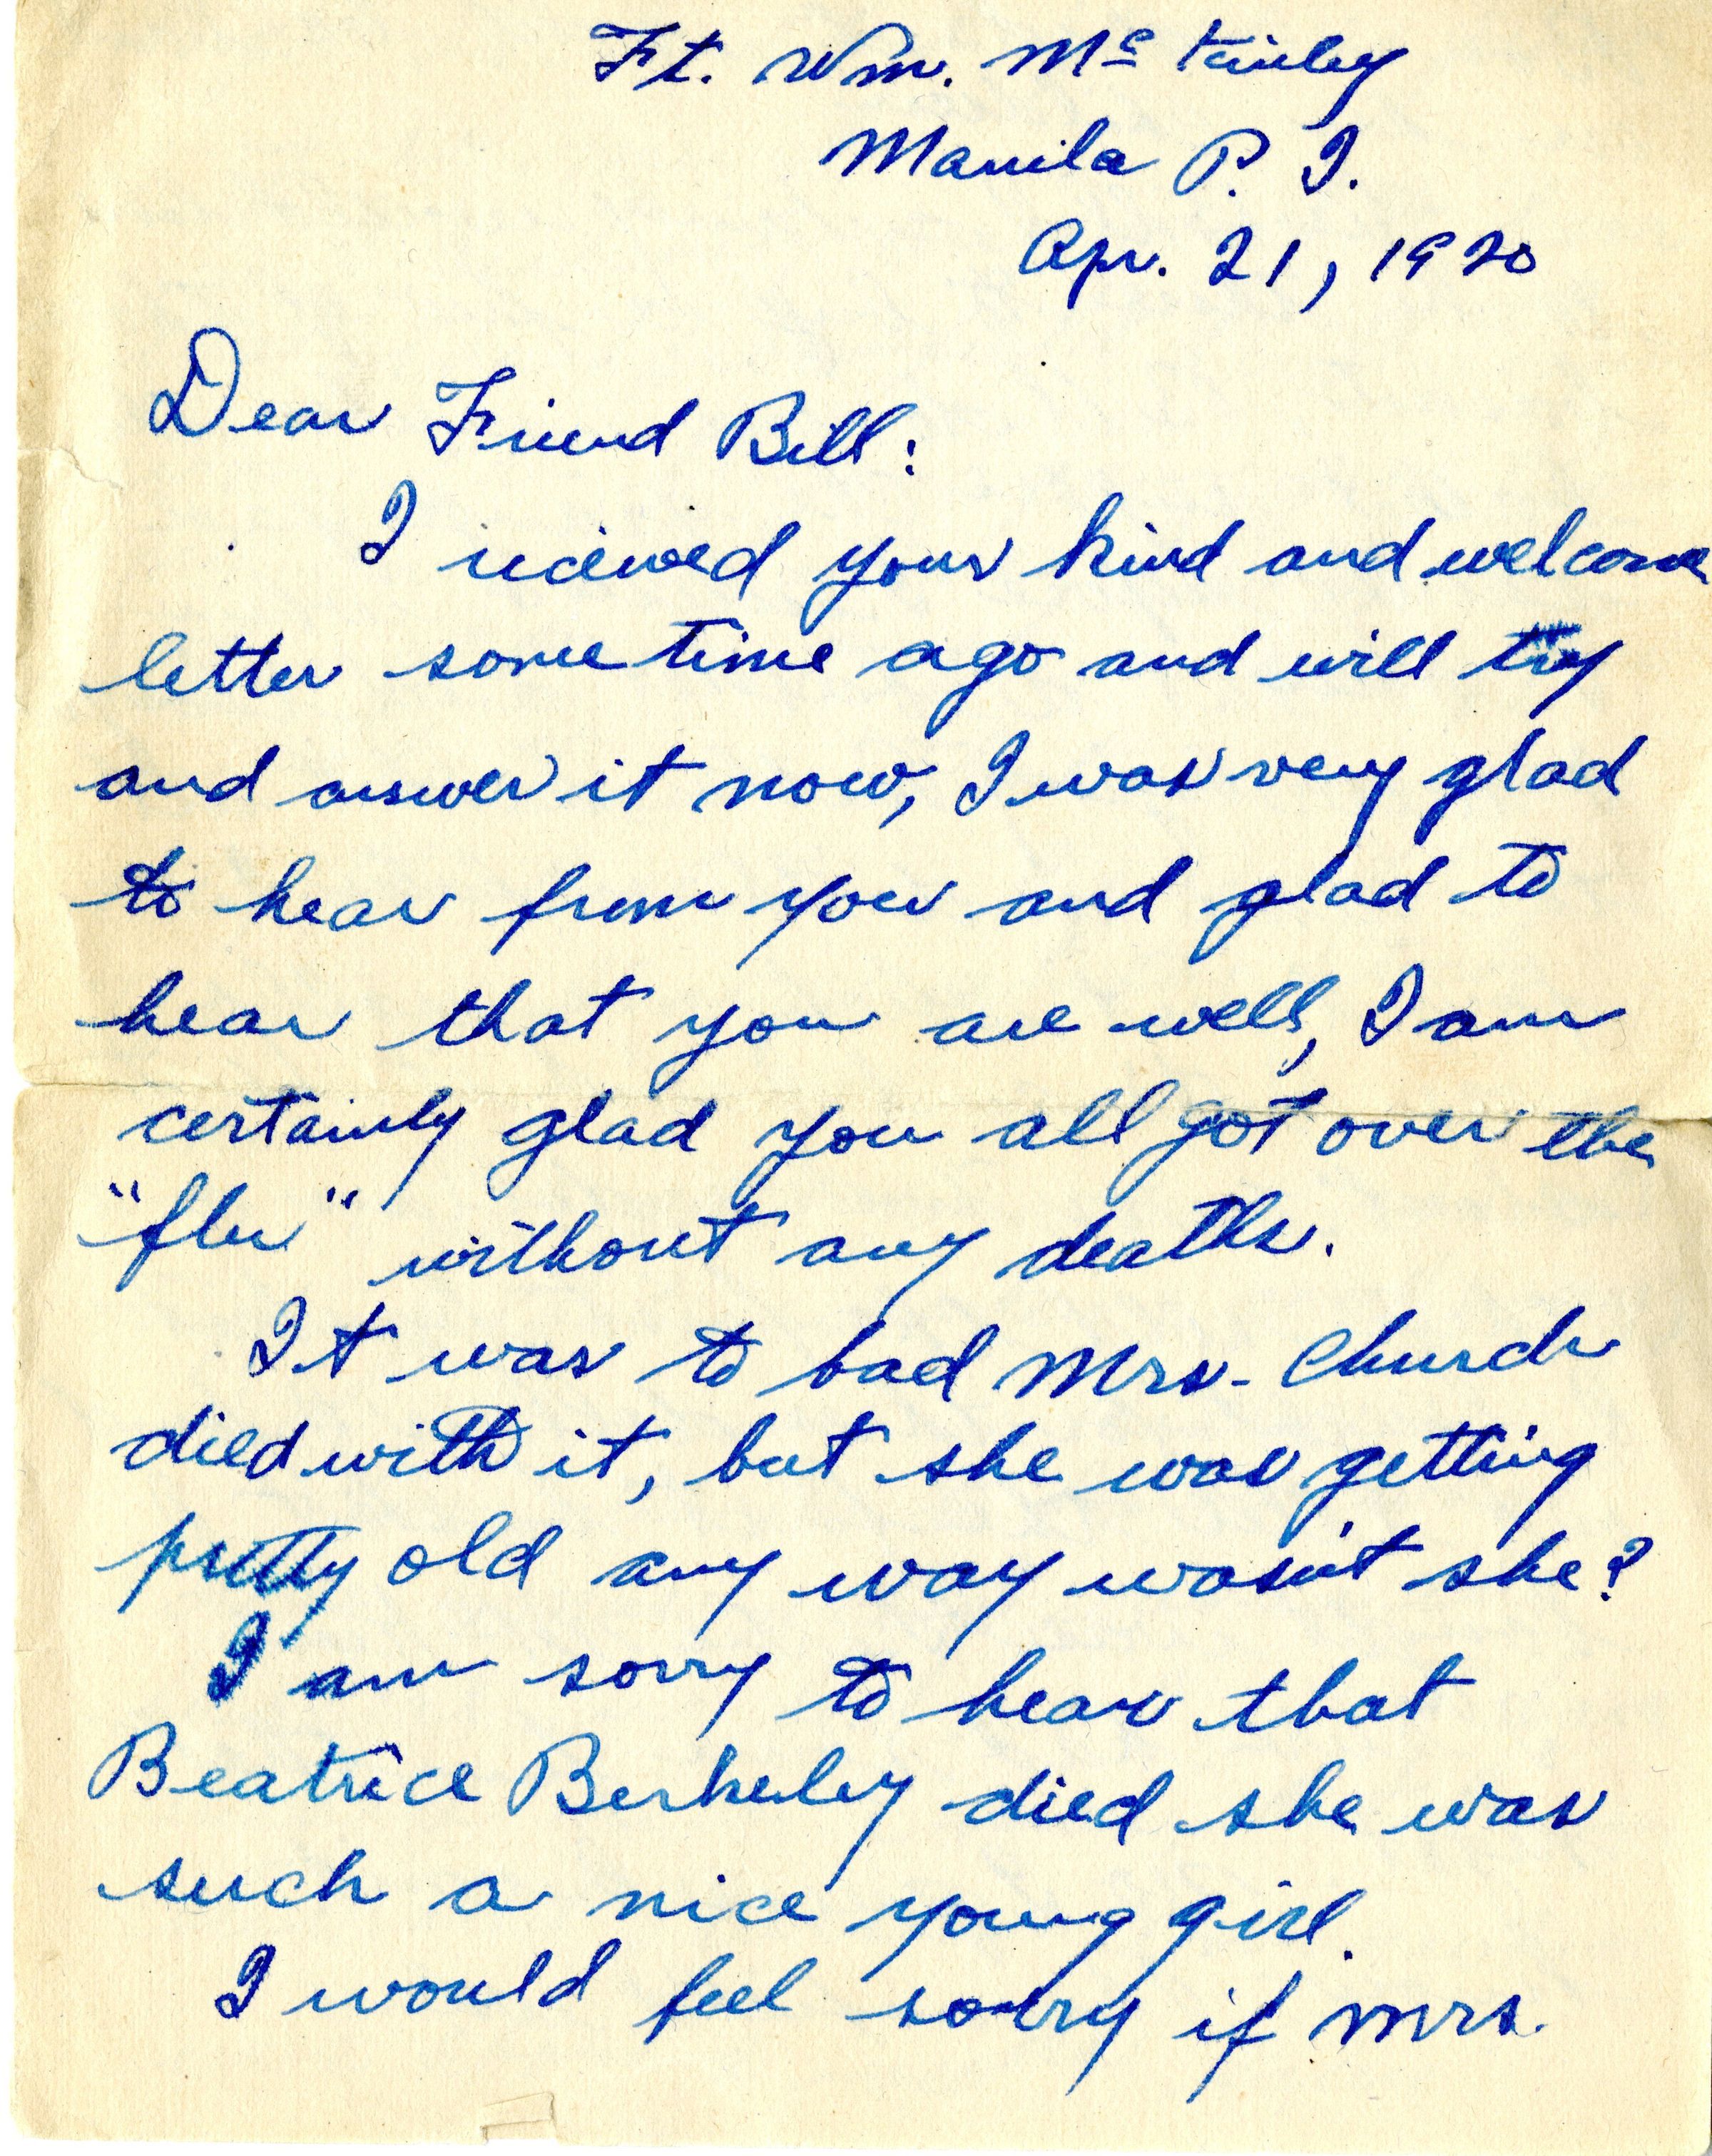 Ft. Wm. Mc Kinley
Manila P. I.
Apr. 21, 1920
Dear Friend Bill:
I recieved your kind and welcome
letter some time ago and will try
and answer it now, I was very glad
to hear from you and glad to
hear that you are well, I am
certainly glad you all got over the
"flu" without any deaths.
It was to bad Mrs. Church
died with it, but she was getting
pretty old any way wasn't she?
I am sorry to hear that
Beatrice Berkeley died she was
such a nice young girl.
I would feel sorry if Mrs.